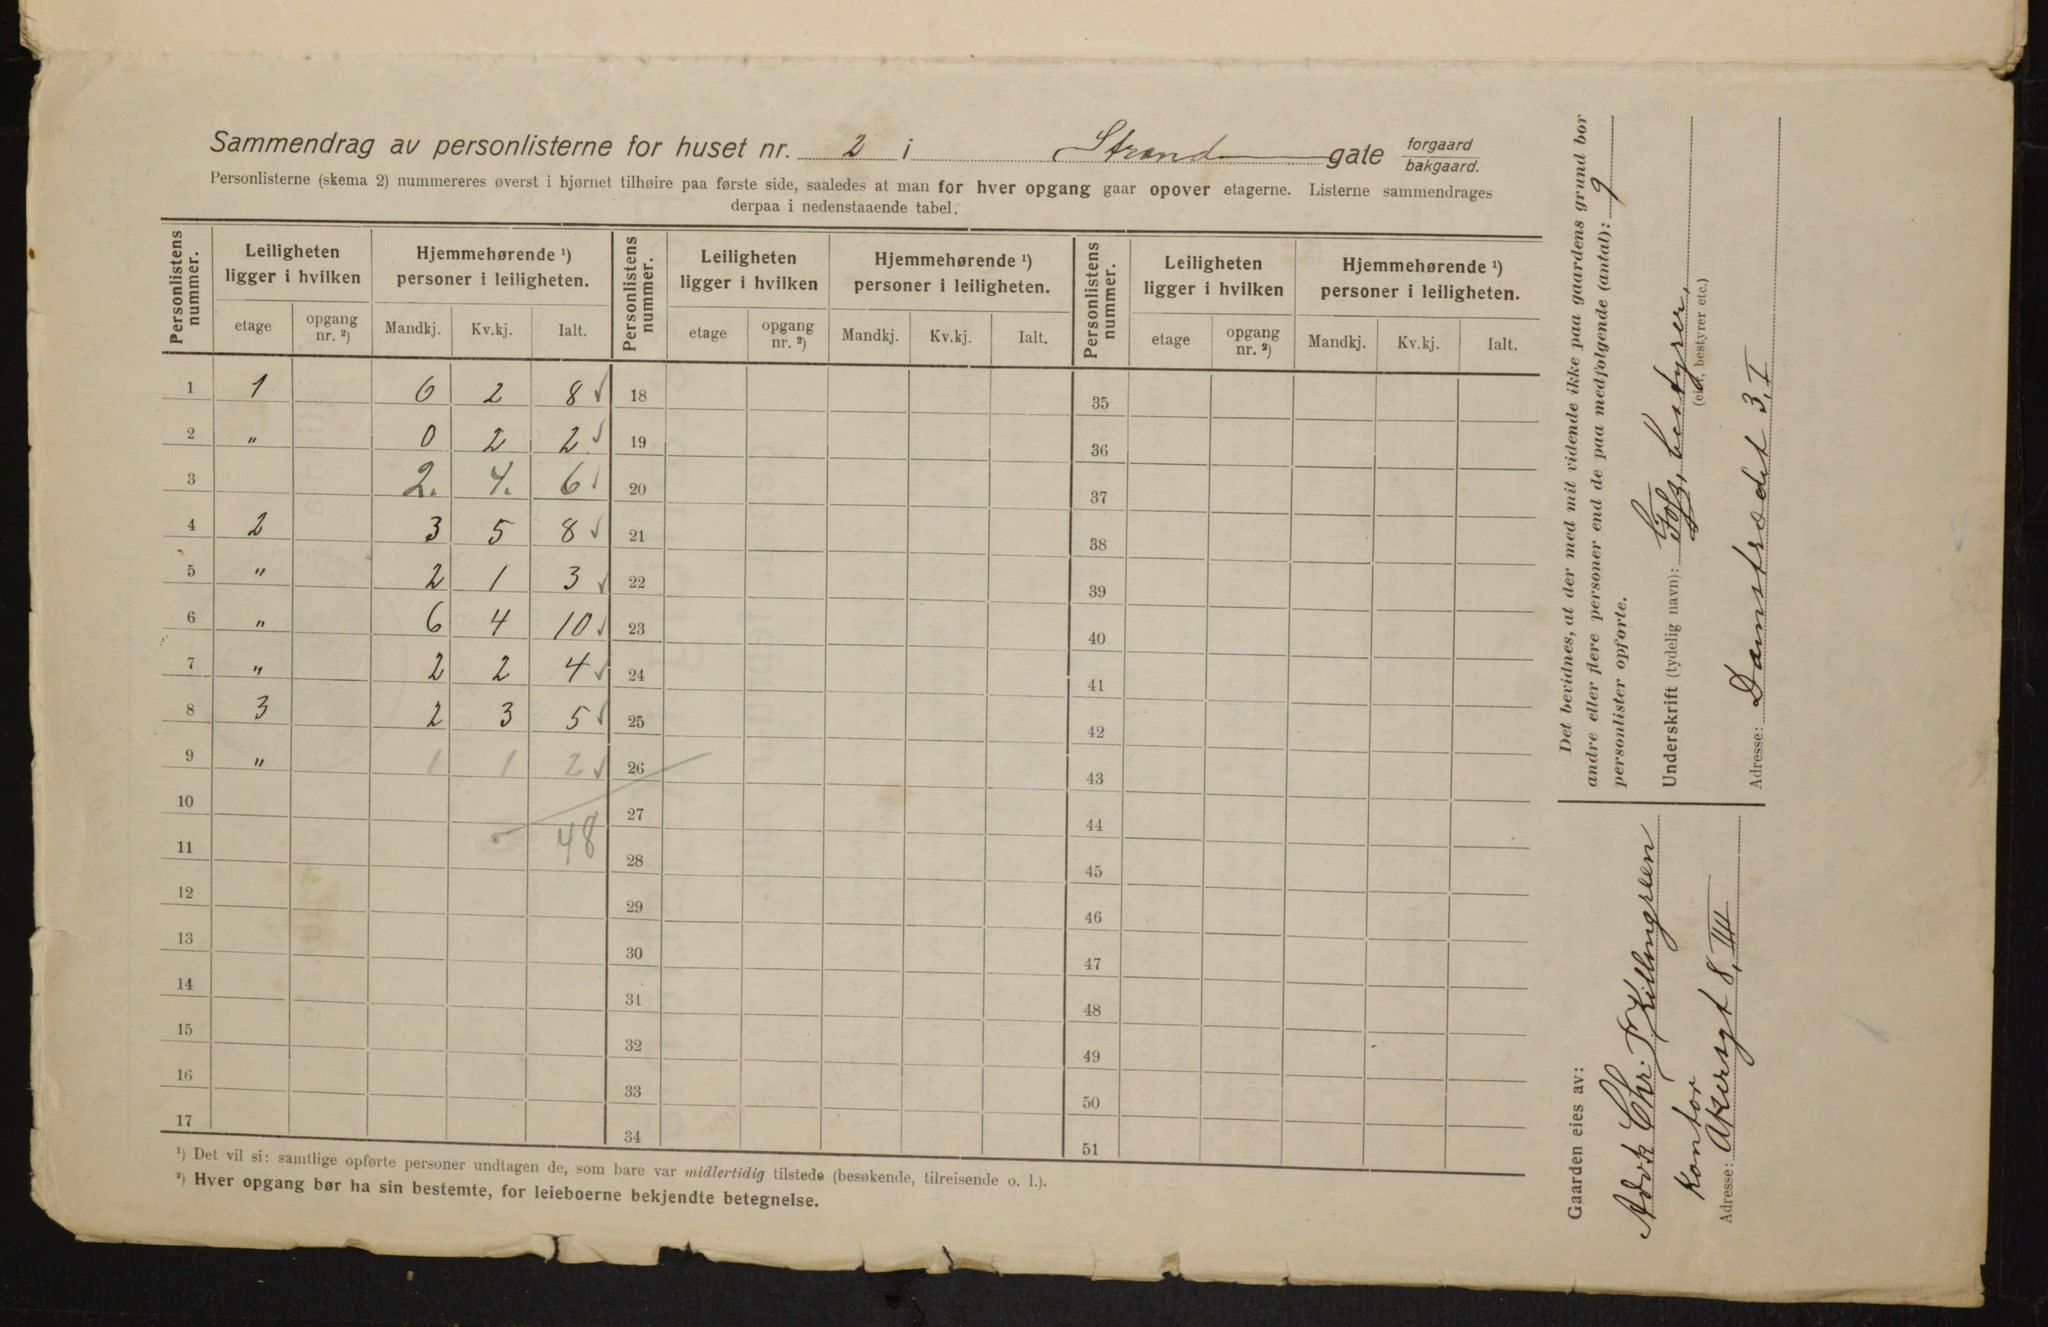 Sammendrag av personlisterne for huset nr. 2 i Strand gate forgaard bakgaard.
Personlisterne (skema 2) nummereres øverst i hjørnet tilhøire paa første side, saaledes at man for hver opgang gaar opover etagerne. Listerne sammendrages
derpaa i nedenstaaende tabel.
Personlistens nummer. Leiligheten ligger i hvilken Hjemmehørende ¹) personer i leiligheten. Personlistens nummer. Leiligheten ligger i hvilken Hjemmehørende ¹) personer i leiligheten. Personlistens nummer. Leiligheten ligger i hvilken Hjemmehørende ¹) personer i leiligheten.
etage opgang nr. ²) Mandkj. Kv.kj. Ialt. etage opgang nr. ²) Mandkj. Kv.kj. Ialt. etage opgang nr. ²) Mandkj. Kv.kj. Ialt.
1 1 6 2 8 18 35
2 " 0 2 2 19 36
3 2. 4. 6 20 37
4 2 3 5 8 21 38
5 " 2 1 3 22 39
6 " 6 4 10 23 40
7 " 2 2 4 24 41
8 3 2 3 5 25 42
9 " 1 1 2 26 43
10 27 44
11 48 28 45
12 29 46
13 30 47
14 31 48
15 32 49
16 33 50
17 34 51
¹) Det vil si: samtlige opførte personer undtagen de, som bare var midlertidig tilstede (besøkende, tilreisende o. l.).
²) Hver opgang bør ha sin bestemte, for leieboerne bekjendte betegnelse.
Det bevidnes, at der med mit vidende ikke paa gaardens grund bor
andre eller flere personer end de paa medfølgende (antal): 9
personlister opførte.
Underskrift (tydelig navn): bestyrer.
(eier, bestyrer etc.)
Adresse: Damstrædet 3, I
Gaarden eies av:
Advk Chr. Killengreen
Kontor
Adresse: Akersgt 8, III